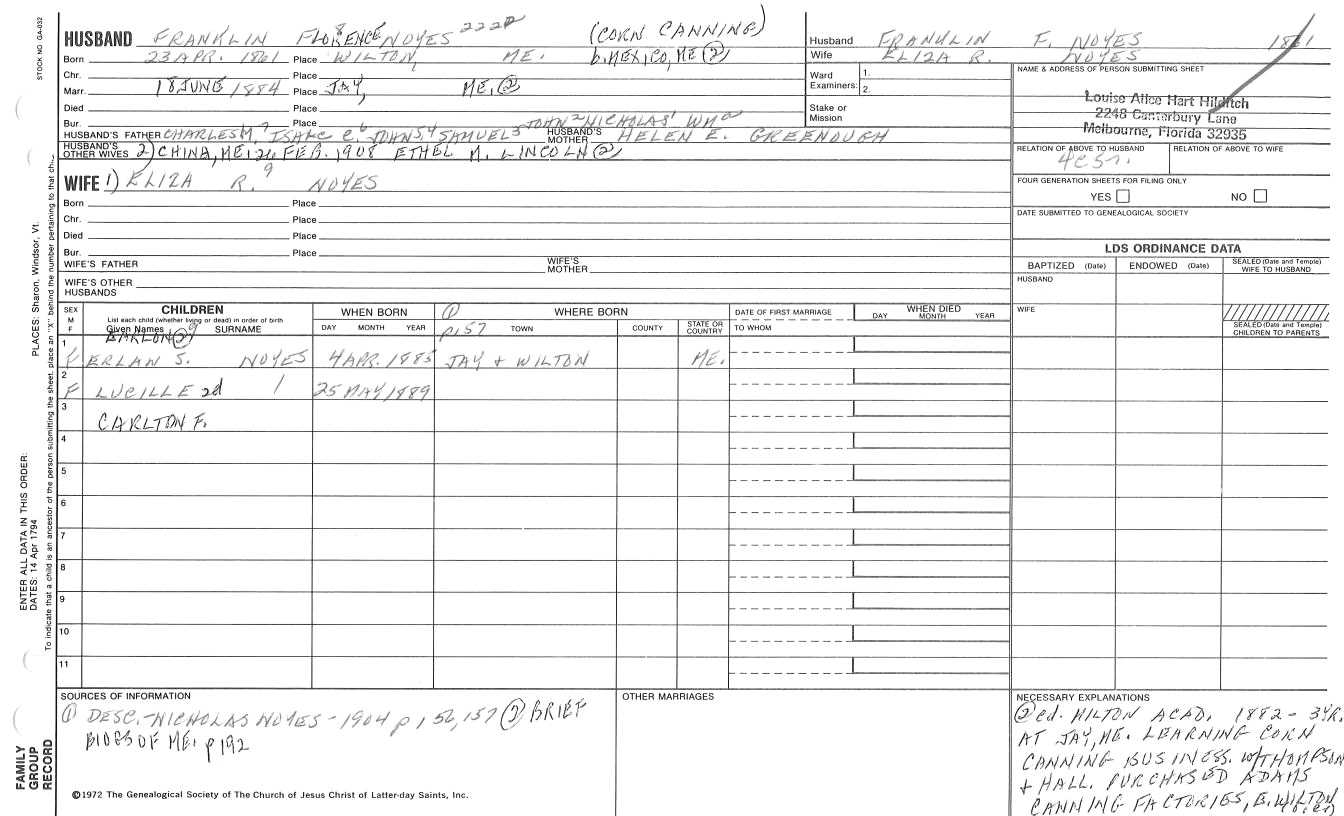 STOCK NO. GA-032
HUSBAND FRANKLIN FLORENCE 8 NOYES 2222 (CORN CANNING)
Born 23 APR. 1861 Place WILTON, ME. b. MEXICO, ME ②
Chr. Place
Marr. 18 JUNE 1884 Place JAY, ME, ②
Died Place
Bur. Place
HUSBAND'S FATHER CHARLES M. 7 ISAAC C. 6 JOHN 5,4 SAMUEL 3 JOHN 2 NICHOLAS 1 WM a HUSBAND'S MOTHER HELEN E. GREENOUGH
HUSBAND'S OTHER WIVES 2) CHINA, ME, 26 FEB. 1908 ETHEL M. LINCOLN ②
Husband FRANKLIN F. NOYES 1861
Wife ELIZA R. NOYES
Ward Examiners: 1.
2.
Stake or Mission
NAME & ADDRESS OF PERSON SUBMITTING SHEET
Louise Alice Hart Hilditch
2248 Canterbury Lane
Melbourne, Florida 32935
RELATION OF ABOVE TO HUSBAND RELATION OF ABOVE TO WIFE
4c5r.
FOUR GENERATION SHEETS FOR FILING ONLY
YES NO
DATE SUBMITTED TO GENEALOGICAL SOCIETY
WIFE 1) ELIZA R. 9 NOYES
Born Place
Chr. Place
Died Place
Bur. Place
WIFE'S FATHER WIFE'S MOTHER
WIFE'S OTHER HUSBANDS
LDS ORDINANCE DATA
BAPTIZED (Date) ENDOWED (Date) SEALED (Date and Temple) WIFE TO HUSBAND
HUSBAND
WIFE
SEALED (Date and Temple) CHILDREN TO PARENTS
SEX M F
CHILDREN
List each child (whether living or dead) in order of birth
Given Names SURNAME
WHEN BORN
DAY MONTH YEAR
① WHERE BORN
p.157 TOWN COUNTY STATE OR COUNTRY
DATE OF FIRST MARRIAGE
TO WHOM
WHEN DIED
DAY MONTH YEAR
EARLON ② 9
1 F ERLAN S. NOYES 4 APR. 1885 JAY + WILTON ME.
2 F LUCILLE 2d 1 25 MAY 1889
3 CARLTON F.
4
5
6
7
8
9
10
11
SOURCES OF INFORMATION
① DESC.-NICHOLAS NOYES-1904 p 156, 157 ② BRIEF
BIOGS OF ME. p192
©1972 The Genealogical Society of The Church of Jesus Christ of Latter-day Saints, Inc.
OTHER MARRIAGES
NECESSARY EXPLANATIONS
② ed. WILTON ACAD. 1882 - 3 YR.
AT JAY, ME. LEARNING CORN
CANNING BUSINESS. W/THOMPSON
+ HALL. PURCHASED ADAMS
CANNING FACTORIES, E. WILTON
PLACES: Sharon, Windsor, Vt.
ENTER ALL DATA IN THIS ORDER:
DATES: 14 Apr 1794
To indicate that a child is an ancestor of the person submitting the sheet, place an "X" behind the number pertaining to that chi
FAMILY GROUP RECORD